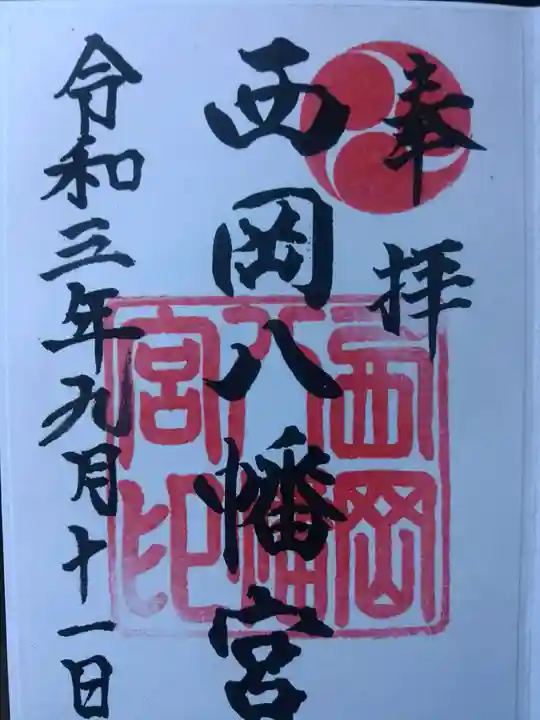 奉拝
西岡八幡宮
令和三年九月十一日
西岡八幡宮印